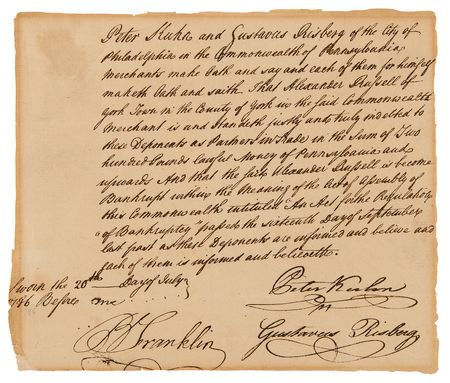 Peter Kuhn and Gustavus Risberg of the City of
Philadelphia in the Commonwealth of Pennsylvania
Merchants make Oath and say and each of them for himself
maketh Oath and saith That Alexander Russell of
York Town in the County of York in the said Commonwealth
Merchant is and Standeth justly and truly indebted to
these Deponents as Partners in Trade in the Sum of Two
hundred Pounds Lawful Money of Pennsylvania and
upwards And that the said Alexander Russell is become
Bankrupt within the Meaning of the Act of Assembly of
this Commonwealth intituled "An Act for the Regulation
"of Bankruptcy" passed the sixteenth Day of September
last past as these Deponents are informed and believe and
each of them is informed and believeth.
Sworn the 20th Day of July
1786 Before me
Peter Kuhn
B Franklin
Gustavus Risberg